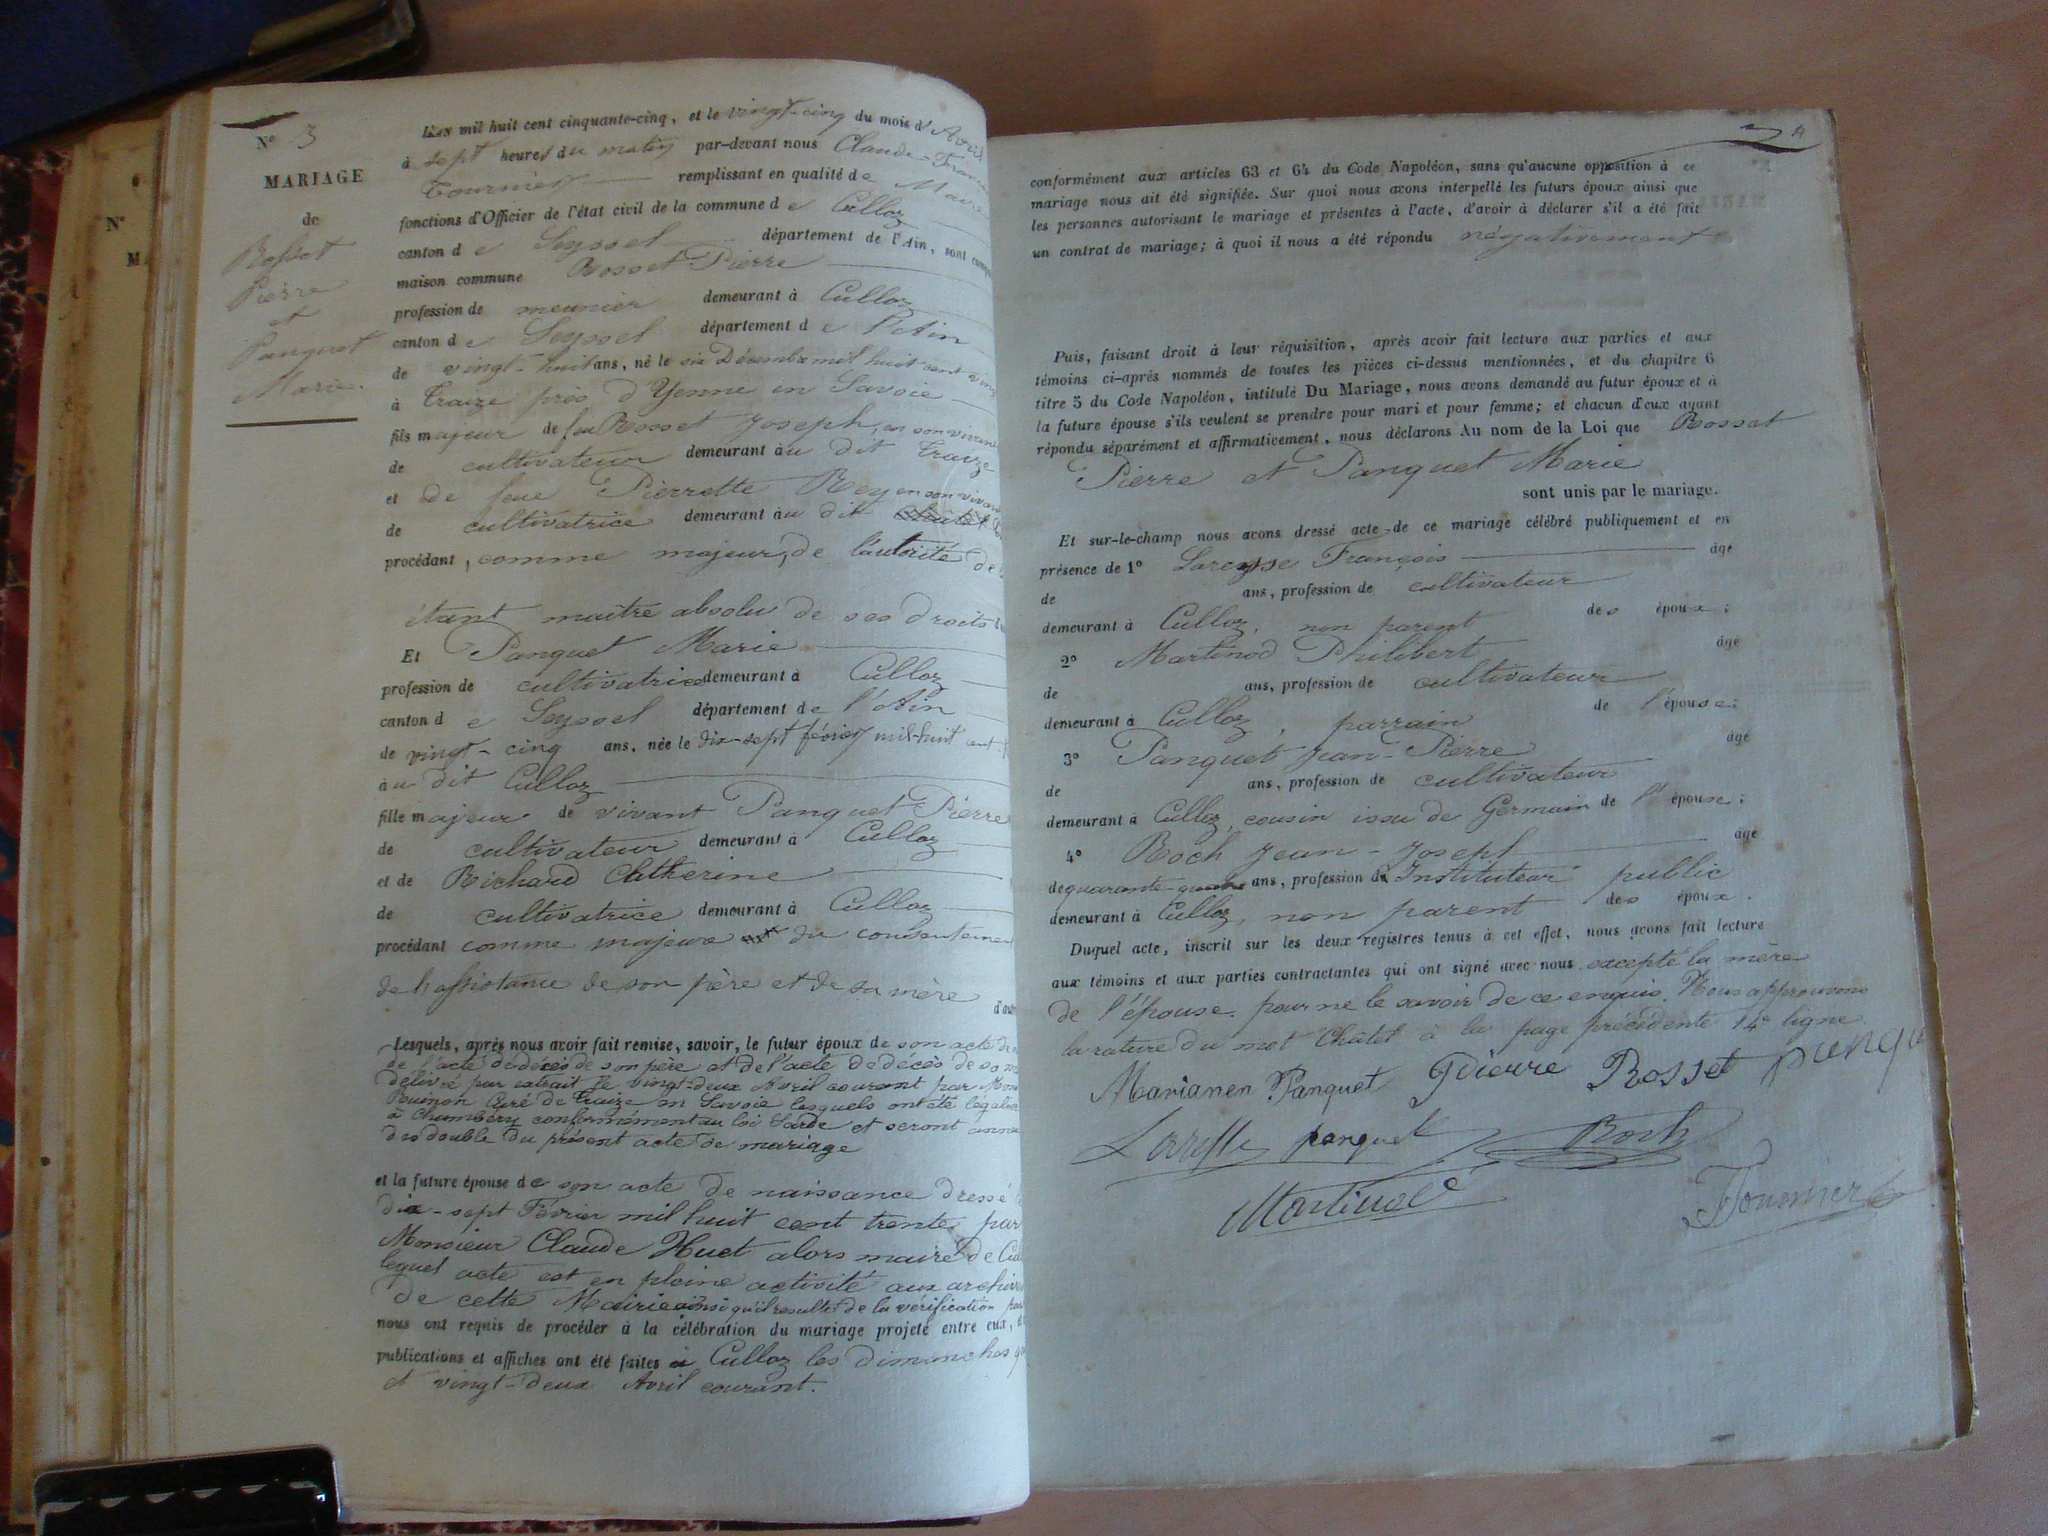 N° 3
MARIAGE
de
Rosset
Pierre
et
Panquet
Marie.
L'an mil huit cent cinquante-cinq, et le vingt-cinq du mois d'Avril
à sept heures du matin par-devant nous Claude-François
Tournier remplissant en qualité de Maire
fonctions d'Officier de l'état civil de la commune de Culloz
canton de Seyssel département de l'Ain, sont comparus
maison commune Rosset Pierre
profession de meunier demeurant à Culloz
canton de Seyssel département de l'Ain
de vingt-huit ans, né le six Décembre mil huit cent vingt
à Traize près d'Yenne en Savoie
fils majeur de feu Rosset Joseph, en son vivant
de cultivateur demeurant au dit Traize
et de feue Pierrette Rey en son vivant
de cultivatrice demeurant au dit
procédant, comme majeur, de l'autorité de
étant maître absolu de ses droits
Et Panquet Marie
profession de cultivatrice demeurant à Culloz
canton de Seyssel département de l'Ain
de vingt-cinq ans, née le dix-sept février mil-huit cent
au dit Culloz
fille majeure de vivant Panquet Pierre
de cultivateur demeurant à Culloz
et de Richard Catherine
de cultivatrice demeurant à Culloz
procédant comme majeure du consentement
de l'assistance de son père et de sa mère
d'autre
Lesquels, après nous avoir fait remise, savoir, le futur époux de son acte de
de l'acte de décès de son père et de l'acte de décès de sa
délivré par extrait le vingt-deux Avril courant par
curé de Traize en Savoie lesquels ont été légalisés
à Chambéry conformément au loi Sarde et seront
des double du présent acte de mariage
et la future épouse de son acte de naissance dressé
dix-sept Février mil huit cent trente, par
Monsieur Claude Huet alors maire de
lequel acte est en pleine activité aux archives
de cette Mairie ainsi qu'il resulte de la vérification
nous ont requis de procéder à la célébration du mariage projeté entre eux,
publications et affiches ont été faites à Culloz les dimanches
et vingt-deux Avril courant.
4
conformément aux articles 63 et 64 du Code Napoléon, sans qu'aucune opposition à ce
mariage nous ait été signifiée. Sur quoi nous avons interpellé les futurs époux ainsi que
les personnes autorisant le mariage et présentes à l'acte, d'avoir à déclarer s'il a été fait
un contrat de mariage; à quoi il nous a été répondu négativement
Puis, faisant droit à leur réquisition, après avoir fait lecture aux parties et aux
témoins ci-après nommés de toutes les pièces ci-dessus mentionnées, et du chapitre 6
titre 5 du Code Napoléon, intitulé Du Mariage, nous avons demandé au futur époux et à
la future épouse s'ils veulent se prendre pour mari et pour femme; et chacun d'eux ayant
répondu séparément et affirmativement, nous déclarons Au nom de la Loi que Rosset
Pierre et Panquet Marie
sont unis par le mariage.
Et sur-le-champ nous avons dressé acte de ce mariage célébré publiquement et en
présence de 1° François âgé
de ans, profession de cultivateur
demeurant à Culloz, non parent des époux;
2° Martinod Philibert âgé
de ans, profession de cultivateur
demeurant à Culloz, parrain de l'épouse;
3° Panquet Jean-Pierre âgé
de ans, profession de cultivateur
demeurant à Culloz, cousin issu de Germain de l'épouse;
4° Roch Jean-Joseph âgé
de quarante-quatre ans, profession d'Instituteur public
demeurant à Culloz, non parent des époux.
Duquel acte, inscrit sur les deux registres tenus à cet effet, nous avons fait lecture
aux témoins et aux parties contractantes qui ont signé avec nous excepté la mère
de l'épouse pour ne le savoir de ce enquis. Nous approuvons
la rature du mot Châtel à la page précédente 14e ligne.
Marianen Panquet Pierre Rosset
panquet Roch
Martinod Tournier